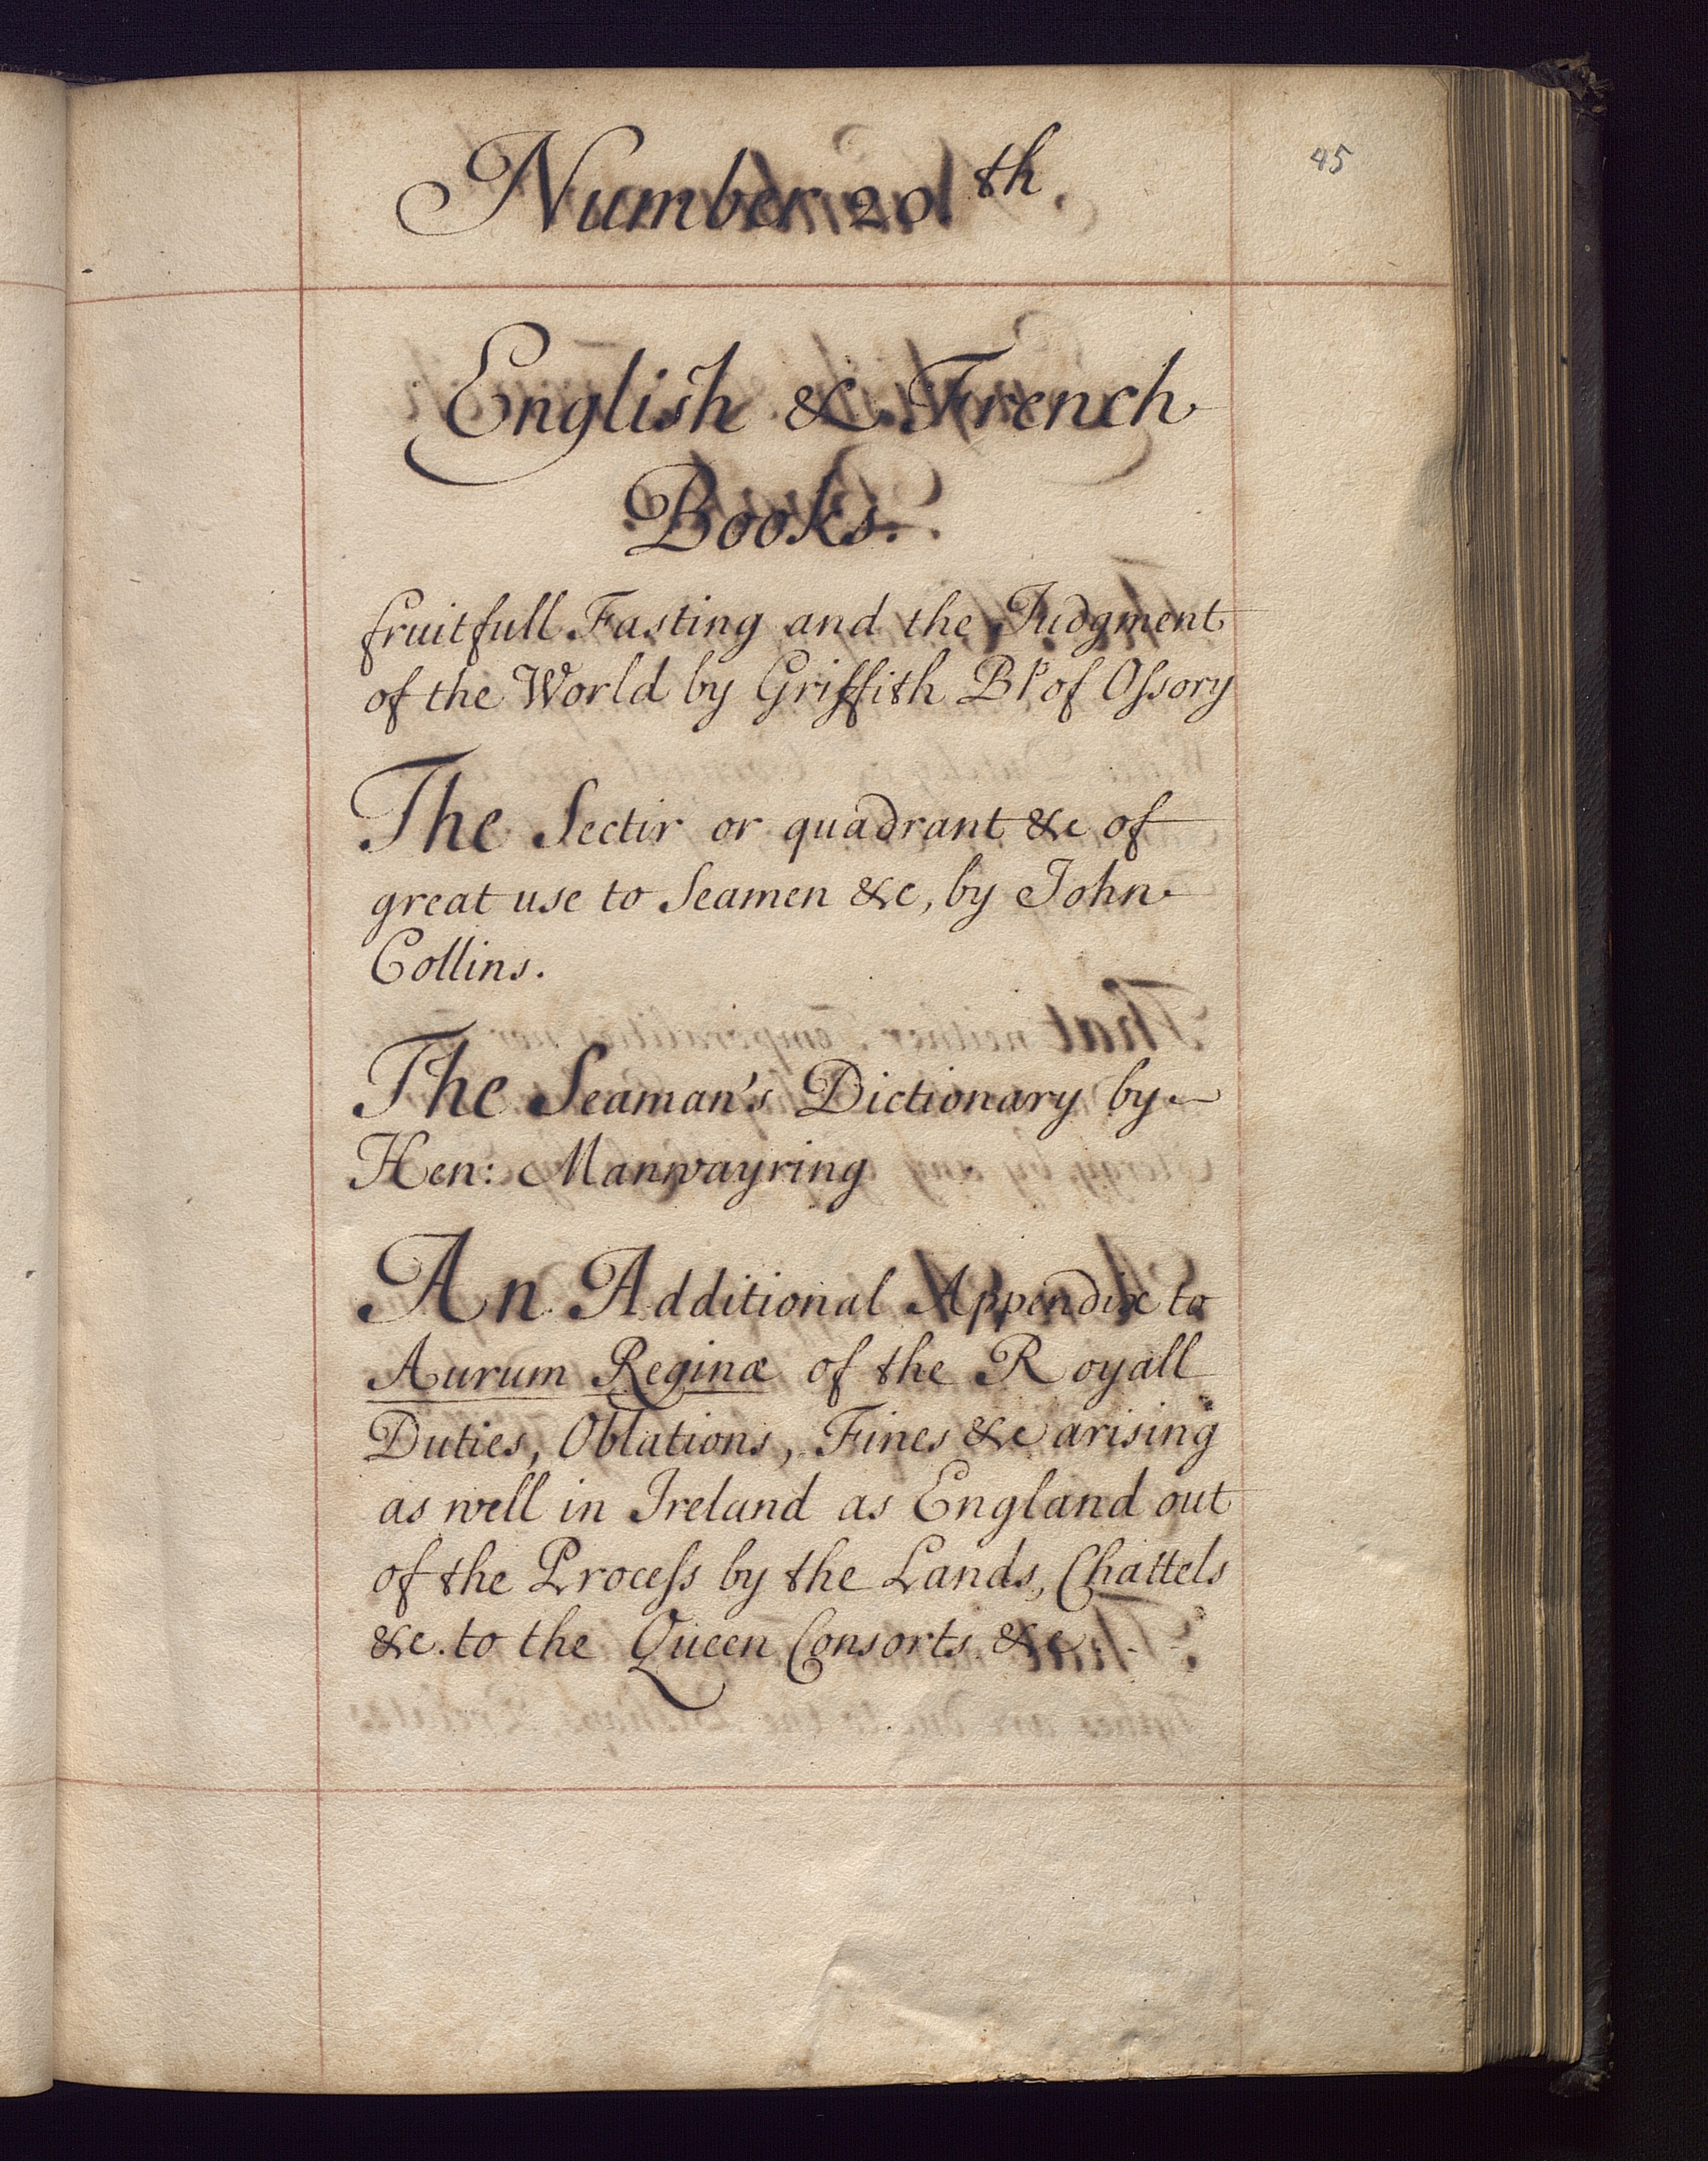 45
Number 20th.
English & French
Books.
fruitfull Fasting and the Judgment
of the World by Griffith Bp of Ossory
The Sectir or quadrant &c of
great use to Seamen &c, by John
Collins.
The Seaman's Dictionary by
Hen: Manwayring
An Additional Appendix to
Aurum Reginæ of the Royall
Duties, Oblations, Fines &c arising
as well in Ireland as England out
of the Process by the Lands, Chattels
&c. to the Queen Consorts &c.